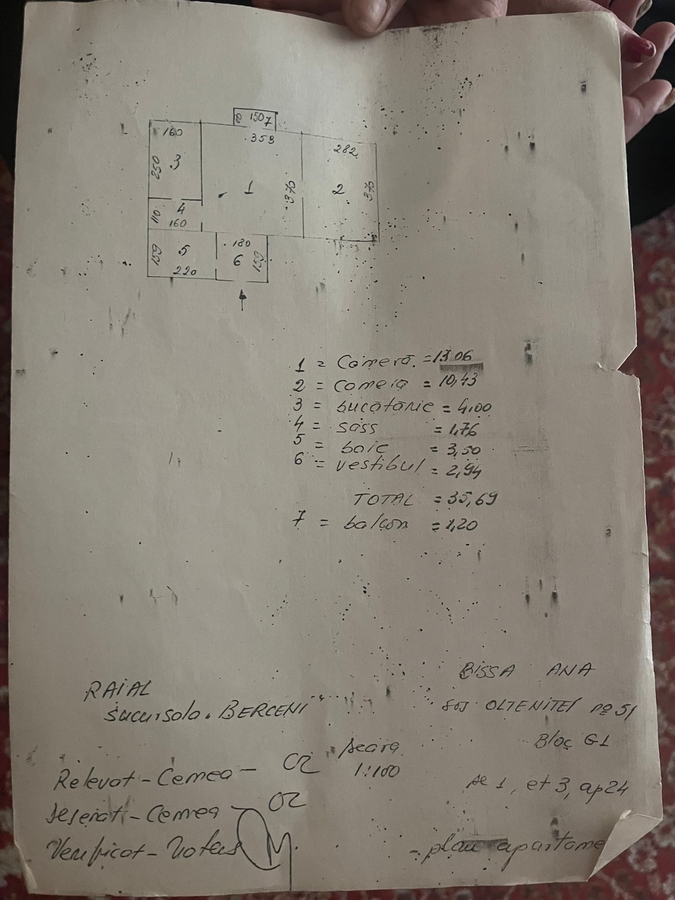 80 1507
160
359
282
250
3
1
370
2
370
110
4
160
159
5
220
180
6
1 = Cameră. = 13 06
2 = camera = 10,43
3 = bucatarie = 4,00
4 = sass = 1,76
5 = baie = 3,50
6 = vestibul = 2,94
TOTAL = 35,69
7 = balcon = 1,20
RAIAL
sucursala. BERCENI
Relevat - Cemea -
Desenat - Cemea -
Verificat -
scara
1:100
BISSA ANA
sos OLTENITEI nº 51
Bloc G1
sc 1, et 3, ap 24
- plan apartame